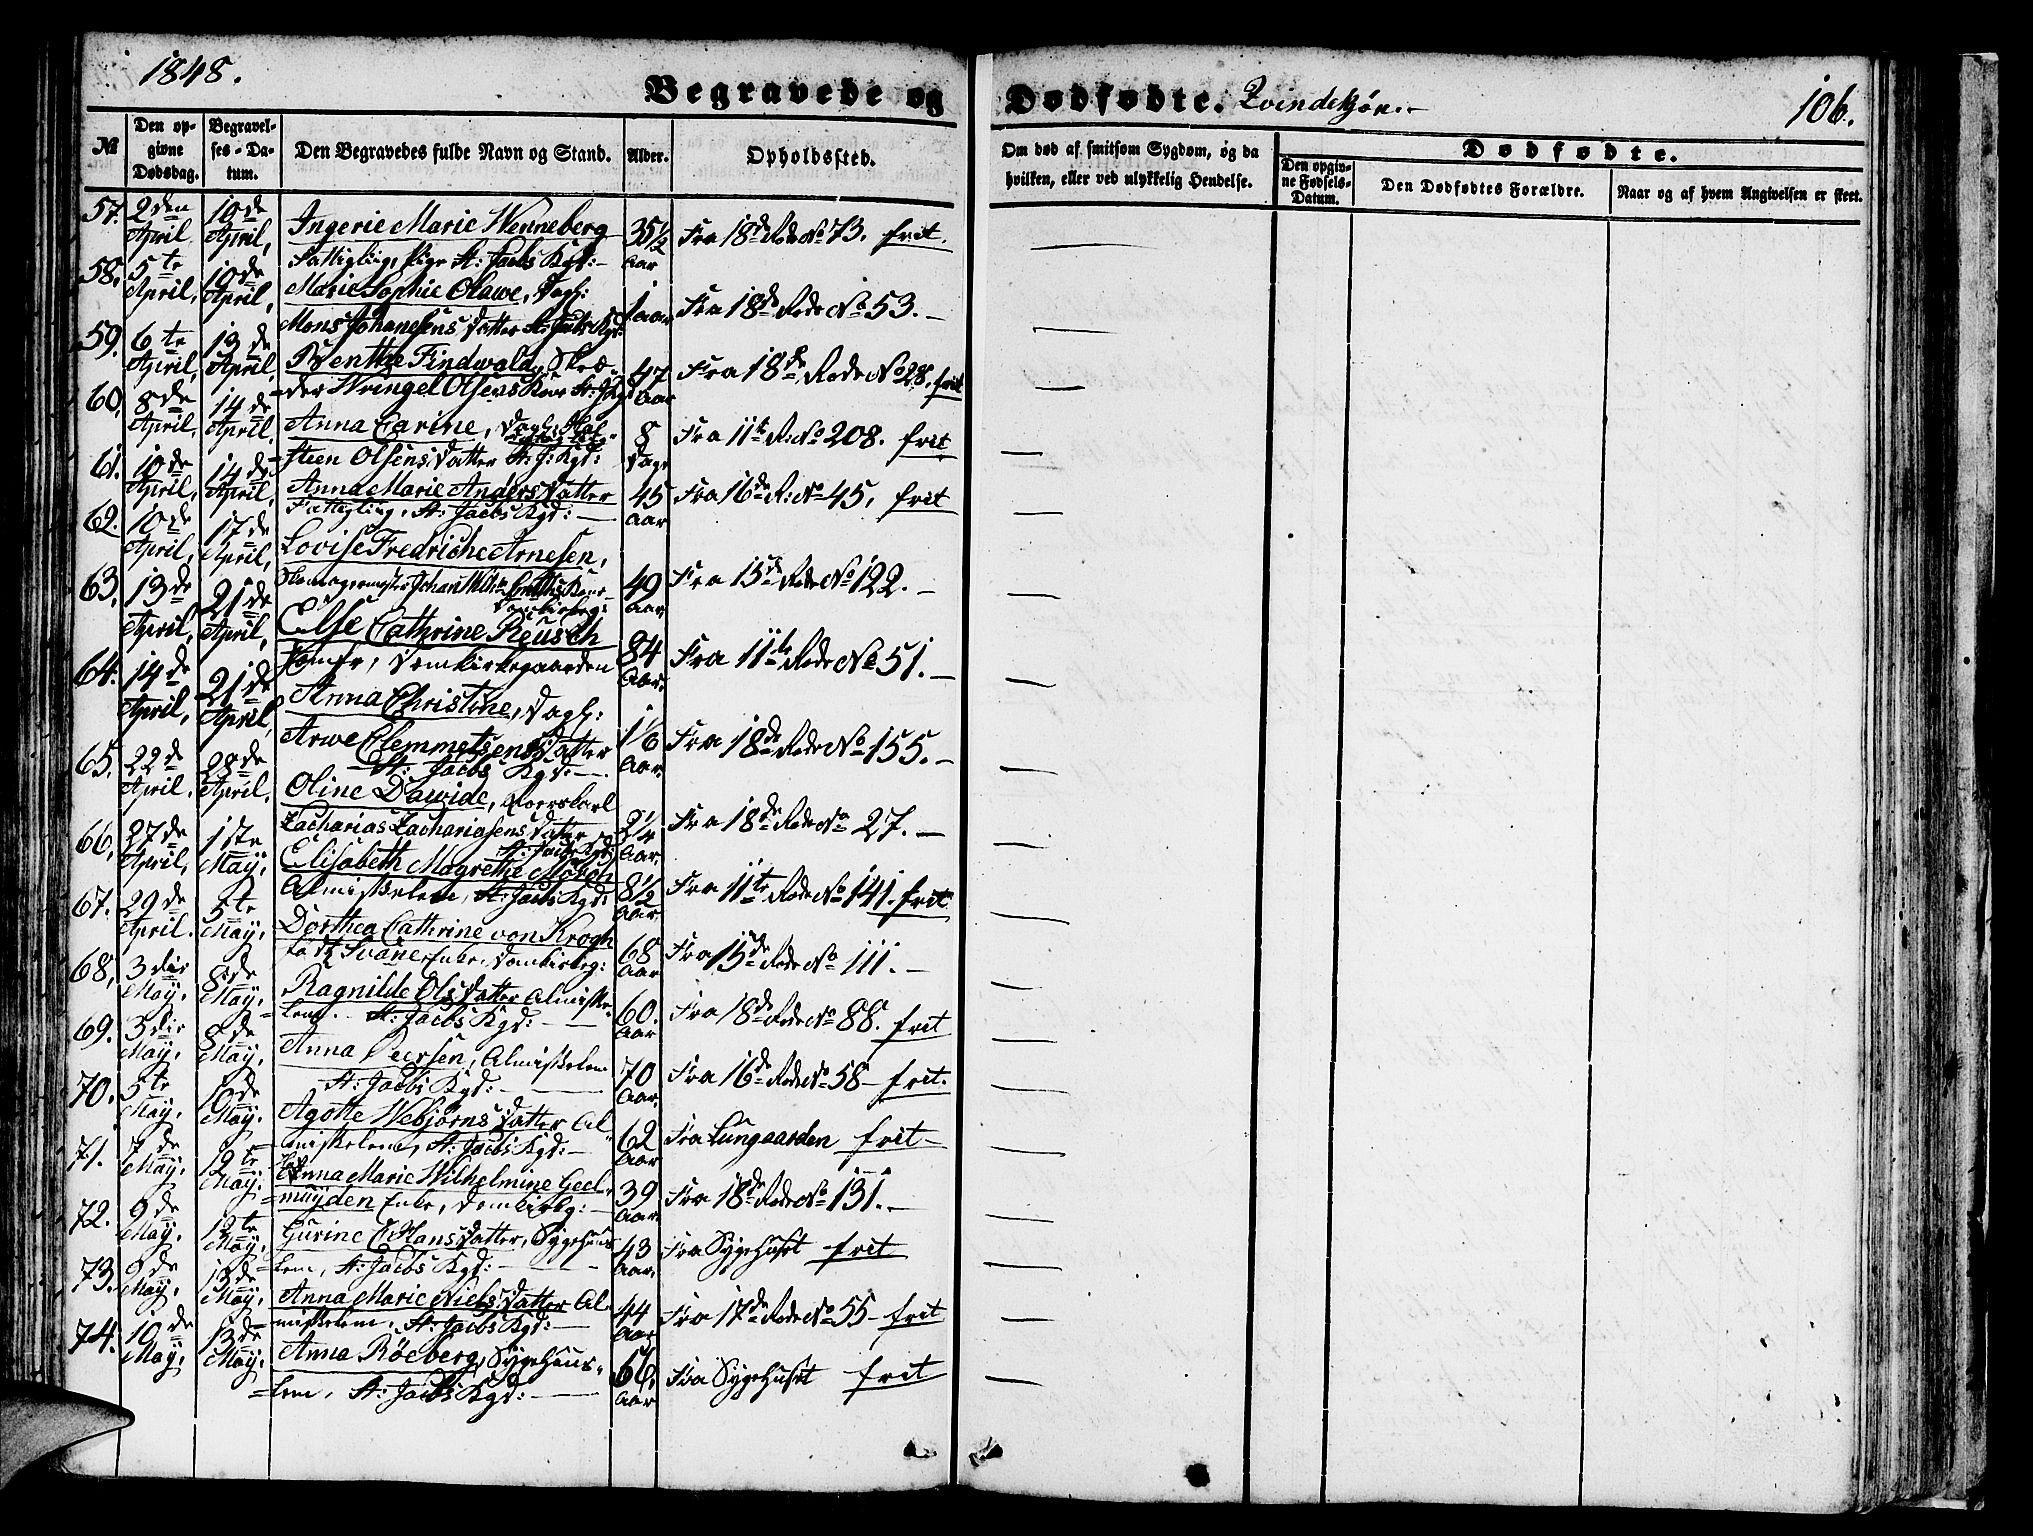 1848.
Begravede og Dødfødte. Qvindekjøn.
106.
№ Den opgivne Dødsdag. Begravelses-Datum. Den Begravedes fulde Navn og Stand. Alder. Opholdssted. Om død af smitsom Sygdom, og da hvilken, eller ved ulykkelig Hendelse. Dødfødte. Den opgivne Fødsels-Datum. Den Dødfødtes Forældre. Naar og af hvem Angivelsen er skeet.
57. 2den April 10de April, Ingerie Marie Wenneberg 35½ Aar Fra 18de Rode No 73. frit.
Fattiglem, Pige St: Jacbs Kgd:
58. 5te April, 10de April, Marie Sophie Olawe, Dagl: 1 aar Fra 18de Rode No 53.
Mons Johanesens Datter St: Jacbs Kgd:
59. 6te April, 13de April, Benthe Findwald, Skræ- 47 Aar Fra 18de Rode No 28. frit
-der Wringel Olsens Kone St: J. Kgd
60. 8de April, 14de April, Anna Carine, Dagl: Hol- 8 Dage Fra 11te R: No 208. frit
=steen Olsens Datter St: J: Kgd:
61. 10de April, 14de April, Anna Marie Anders Datter 45 Aar Fra 16de R: No 45, frit
Fattiglem, St: Jacbs Kgd:
62. 10de April, 17de April, Lovise Fredriche Arnesen, 49 Aar, Fra 15de Rode No 122.
Skomagermester Johan Wilh: Kone
Domkirkeg:
63. 13de April, 21de April, Else Cathrine Reusch 84 Aar. Fra 11te Rode No 51.
Jomfr, Domkirkegaarden
64. 14de April, 21de April, Anna Christine, Dagl: 1⅙ Aar. Fra 18de Rode No 155.
Arwe Clemmetsens Datter
St: Jacbs Kgd:
65. 22de April. 28de April, Oline Dawide, Roerskarl 2¼ Aar. Fra 18de Rode No 27.
Zacharias Zachariasens Datter
St: Jacbs Kgd:
66. 27de April, 1ste May, Elisabeth Magrethe 8½ Aar Fra 11te Rode No 141. frit
Almisselem, St: Jacbs Kgd:
67. 29de April. 5te May, Dorthea Cathrine von Krogh 68 Aar Fra 15de Rode No 111.
född Svane Enke, Domkirkeg:
68. 3die May, 8de May, Ragnilde Ols Datter Almisse- 60. Aar Fra 18de Rode No 88. frit
=lem. St: Jacbs Kgd:
69. 3die May, 8de May, Anna Peersen, Almisselem 70 Aar. Fra 16de Rode No 58 frit.
St: Jacbs Kgd:
70. 5te May, 10de May, Agotte Webjørns Datter Al- 62 Aar Fra Lungaarden frit
misselem, St: Jacbs Kgd:
71. 7de May, 12te May. Anna Marie Wilhelmine Geel- 39 Aar. Fra 18de Rode No 131.
=muyden Enke, Domkirkeg:
72. 9de May, 12te May, Gurine C Hans Datter, Sygehuus 43 Aar, Fra Sygehuset frit
=lem, St: Jacbs Kgd:
73. 9de May, 13de May, Anna Marie Niels Datter Al- 44 Aar Fra 17de Rode No 55 frit
misselem, St: Jacbs Kgd:
74. 10de May, 13de May. Anna Röeberg, Sygehuus- 66, Aar Fra Sygehuset frit
=lem, St: Jacbs Kgd: